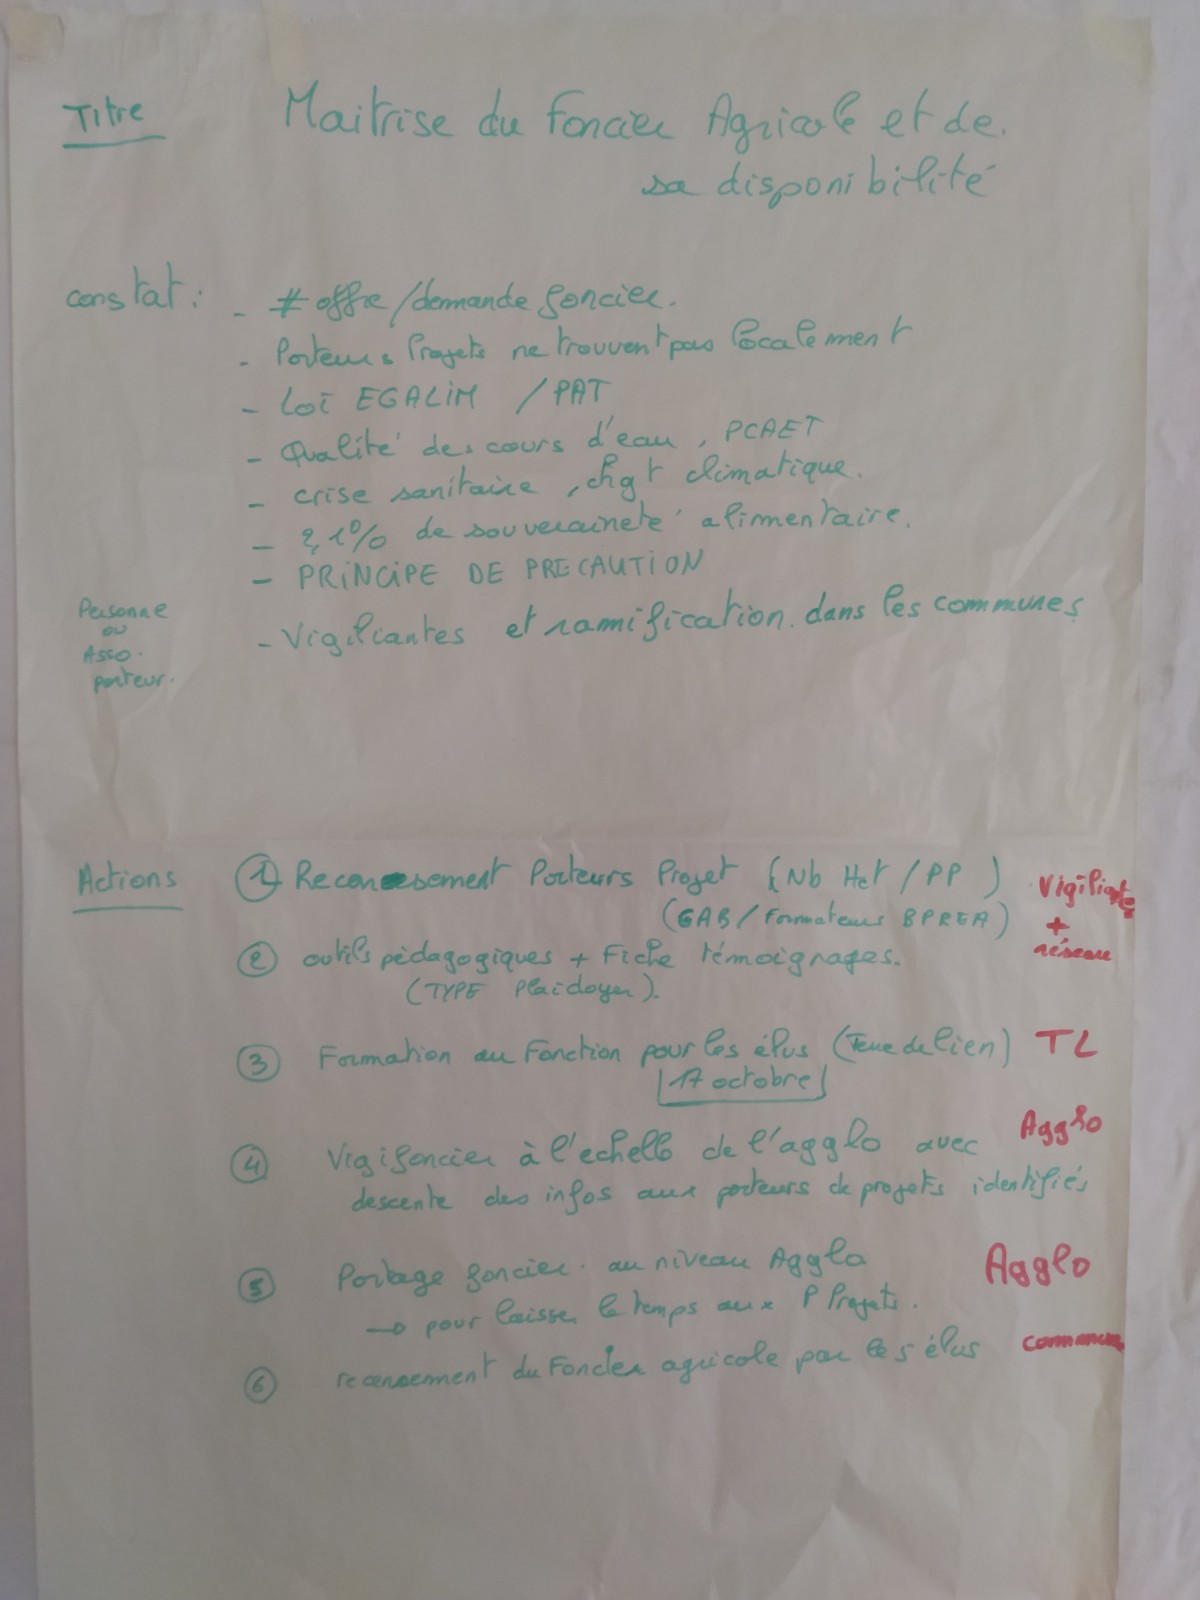 Titre Maitrise du Foncier Agricole et de.
sa disponibilité
constat : - # offre/demande foncier.
- Porteurs Projets ne trouvent pas localement
- Loi EGALIM / PAT
- Qualité des cours d'eau, PCAET
- crise sanitaire, chgt climatique.
- 2,1% de souveraineté alimentaire.
- PRINCIPE DE PRECAUTION
- Vigiliantes et ramification dans les communes
Personne
ou
Asso.
porteur.
Actions ① Recensement Porteurs Projet (Nb Hct / PP) Vigiliante
(GAB/Formateurs BPREA) +
② outils pédagogiques + Fiche témoignages. réseau
(TYPE Plaidoyer).
③ Formation au Fonction pour les élus (Terre de lien) TL
17 octobre
④ Vigifoncier à l'echelle de l'agglo avec Agglo
descente des infos aux porteurs de projets identifiés
⑤ Portage foncier au niveau Agglo Agglo
→ pour laisser le temps aux P Projets.
⑥ recensement du Foncier agricole par les élus commune